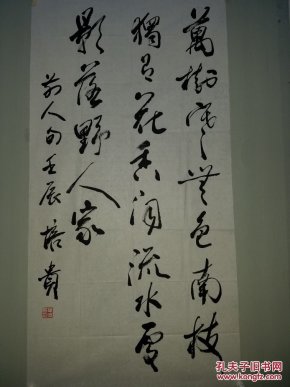 萬樹寒無色南枝
獨有花香聞流水處
影落野人家
前人句壬辰培貴
孔夫子旧书网